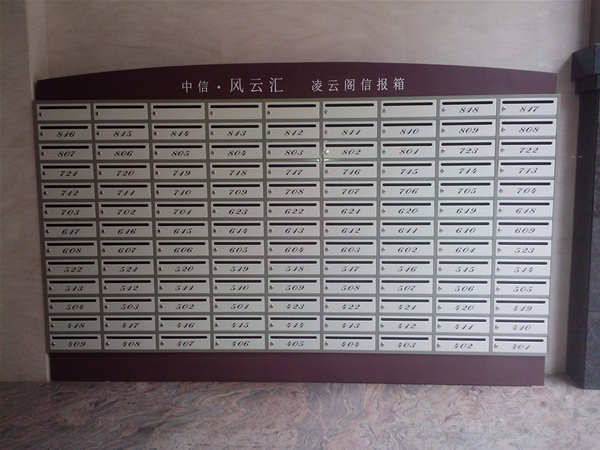 中信·风云汇 凌云阁信报箱
818 817
816 815 814 813 812 811 810 809 808
807 806 805 804 803 802 801 723 722
721 720 719 718 717 716 715 714 713
712 711 710 709 708 707 706 705 704
703 702 701 623 622 621 620 619 618
617 616 615 614 613 612 611 610 609
608 607 606 605 604 603 602 601 523
522 521 520 519 518 517 516 515 514
513 512 511 510 509 508 507 506 505
504 503 502 501 423 422 421 420 419
418 417 416 415 414 413 412 411 410
409 408 407 406 405 404 403 402 401